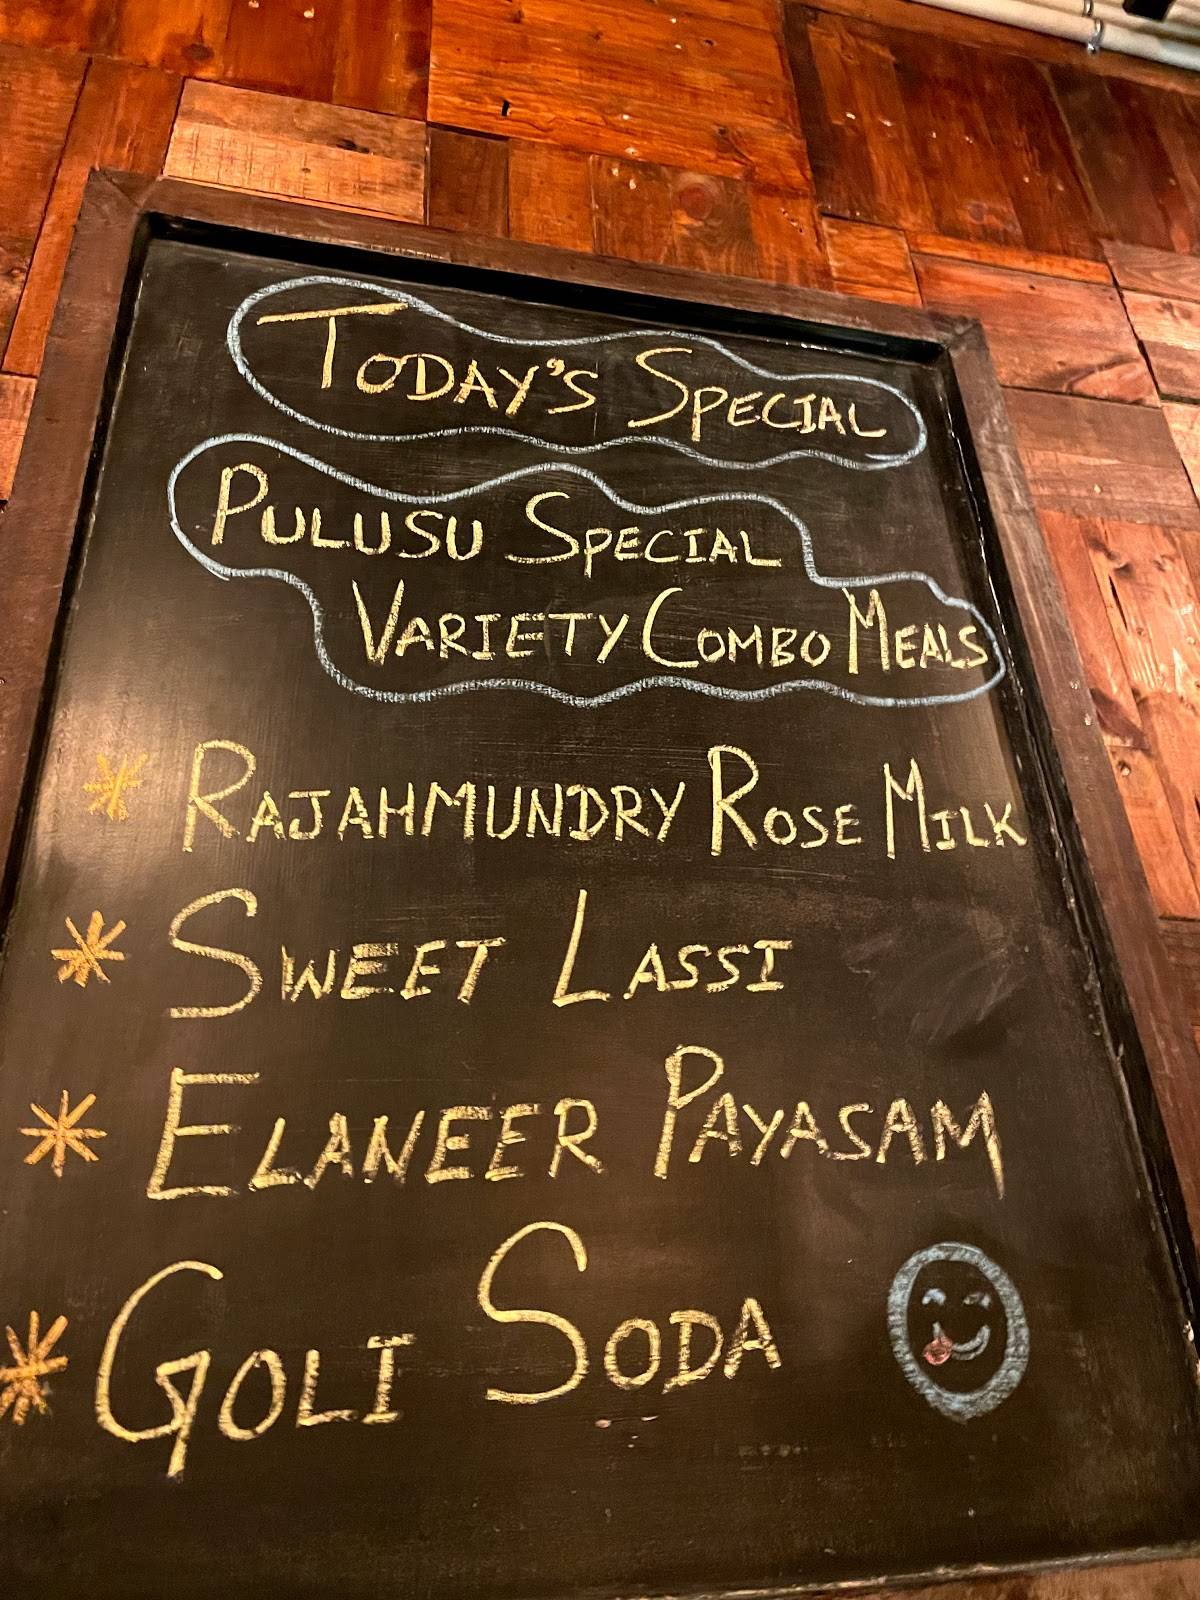 TODAY'S SPECIAL
PULUSU SPECIAL
VARIETY COMBO MEALS
* RAJAHMUNDRY ROSE MILK
* SWEET LASSI
* ELANEER PAYASAM
* GOLI SODA